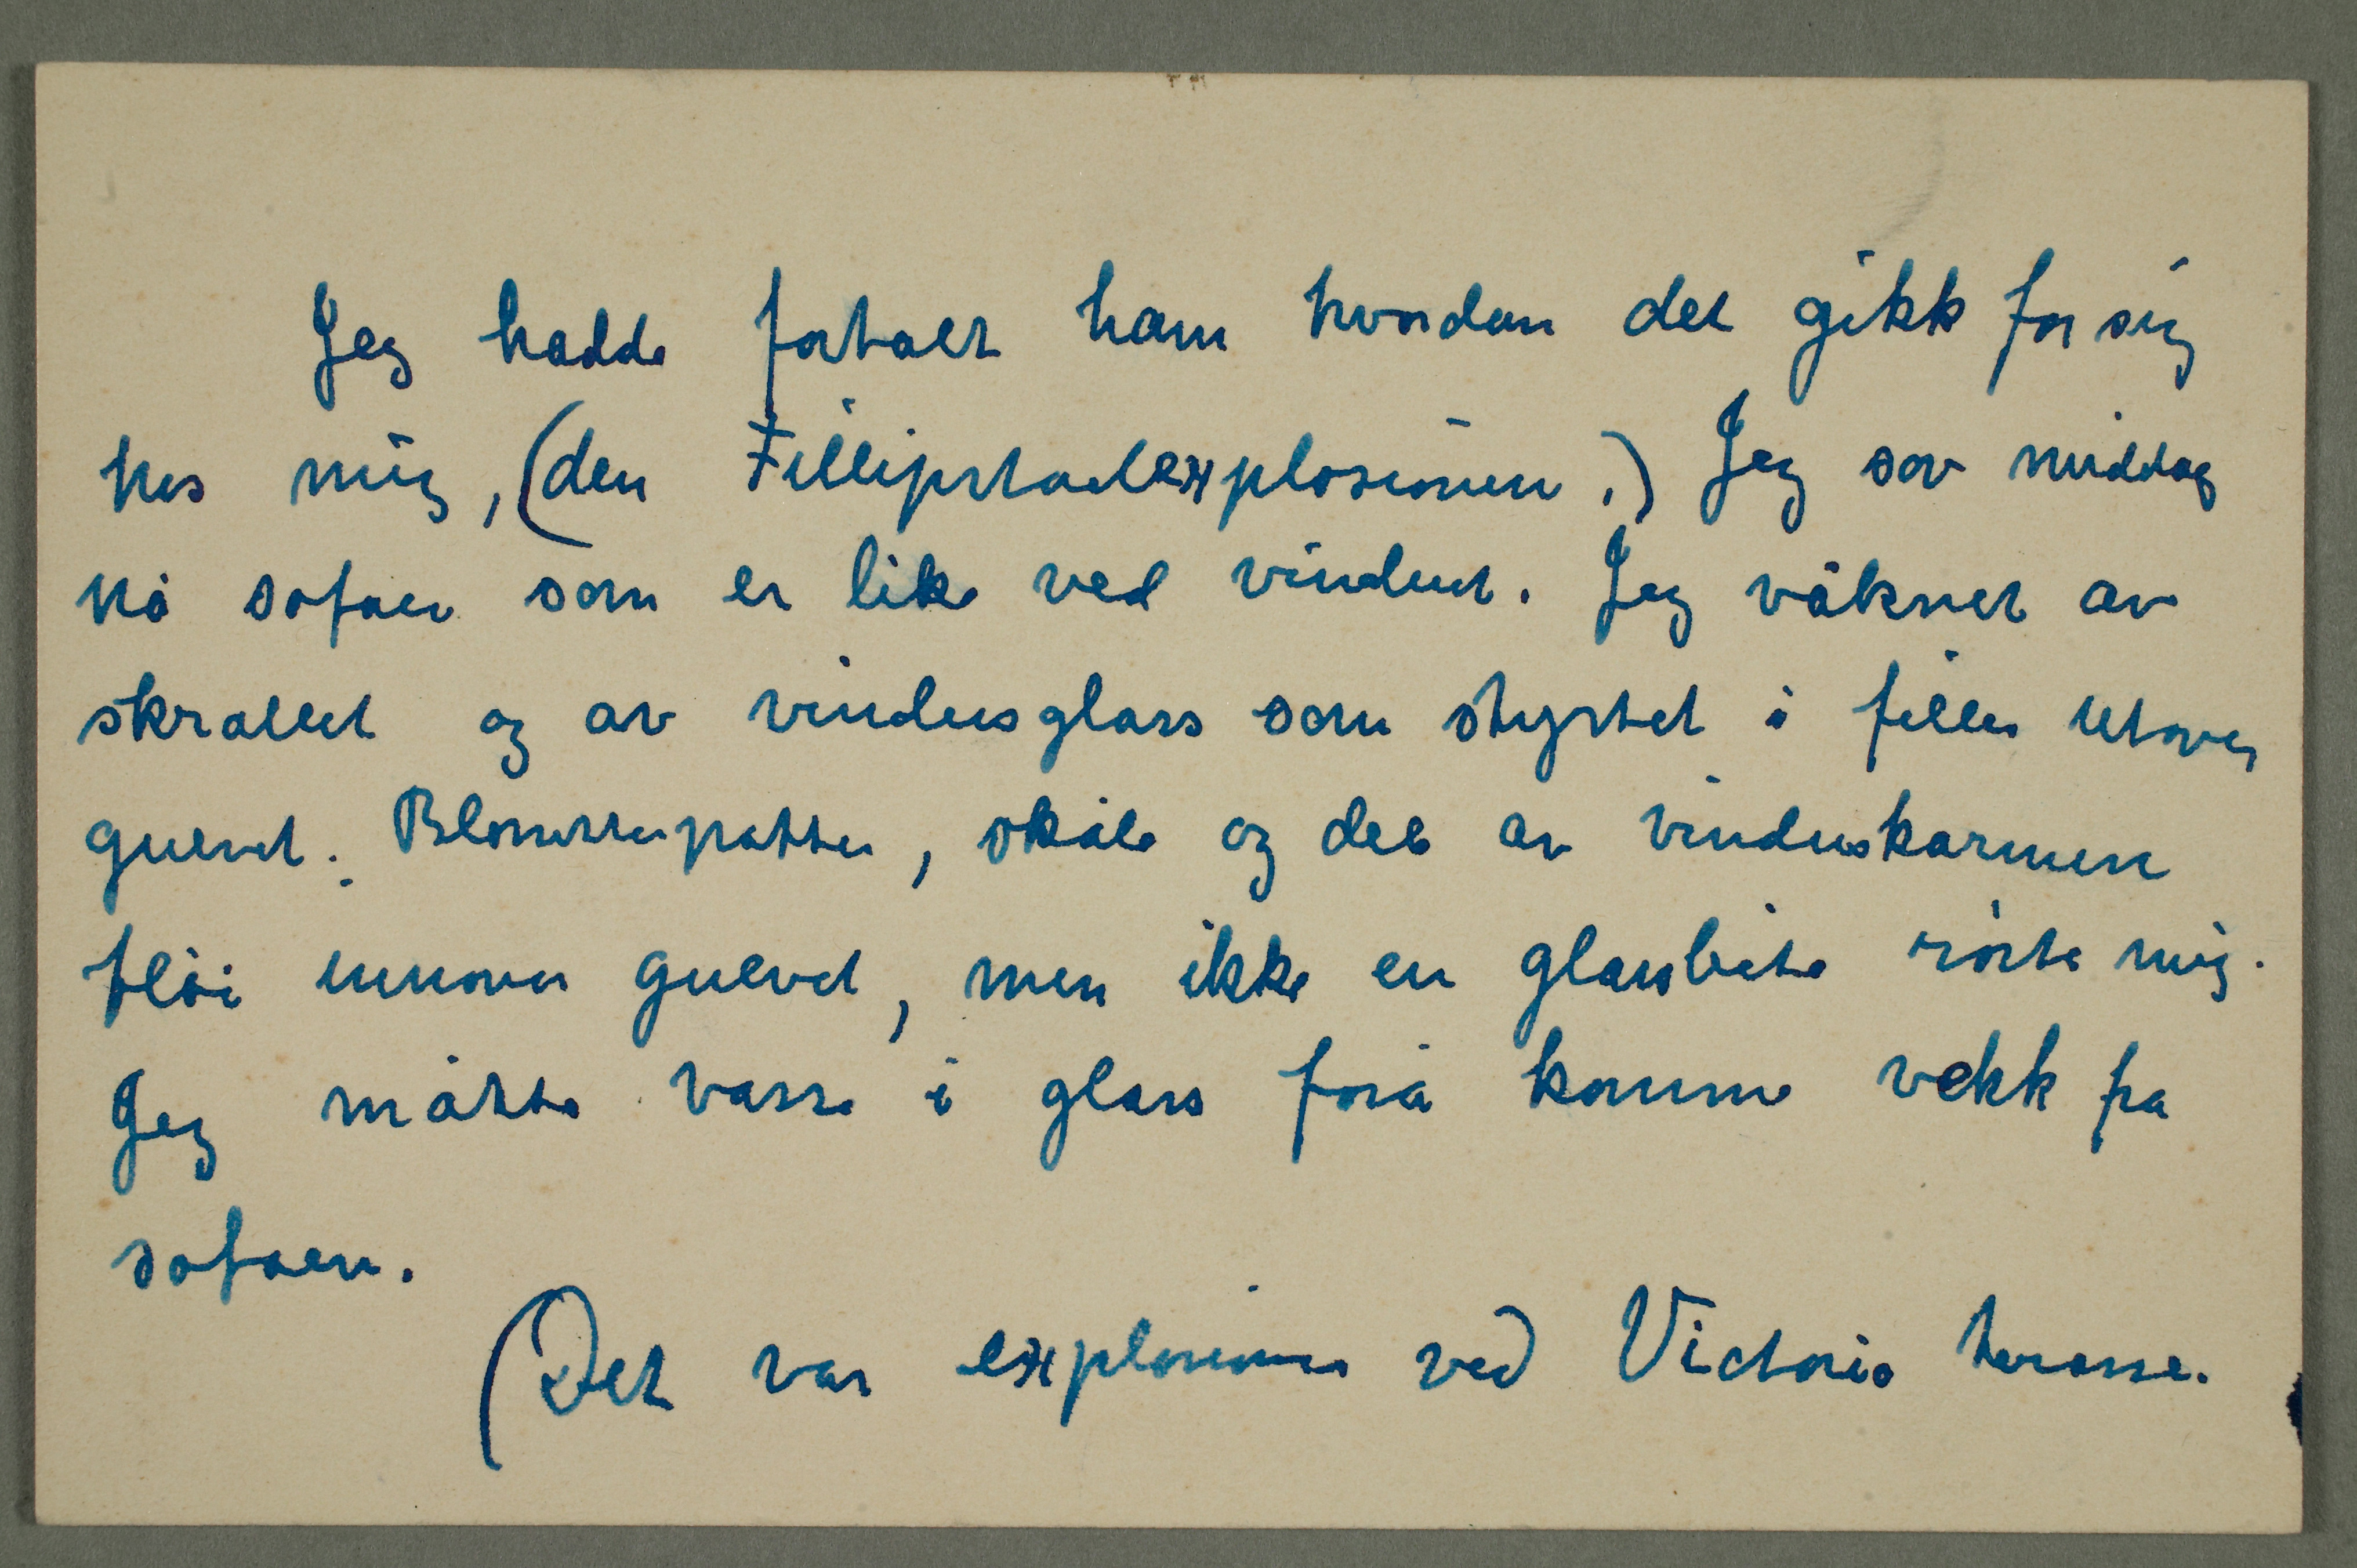 Jeg hadde fortalt ham hvordan det gikk for sig
hos mig, (den Fillipstadexplosionen.) Jeg sov middag
på sofaen som er like ved vinduet. Jeg våknet av
skrallet og av vindusglass som styrtet i filler utover
gulvet. Blomsterpotter, skåle og del av vinduskarmen
fløi innover gulvet, men ikke en glassbite rørte mig.
Jeg måtte vasse i glass forå komme vekk fra
sofaen.
(Det var explosionen ved Victoria terasse.